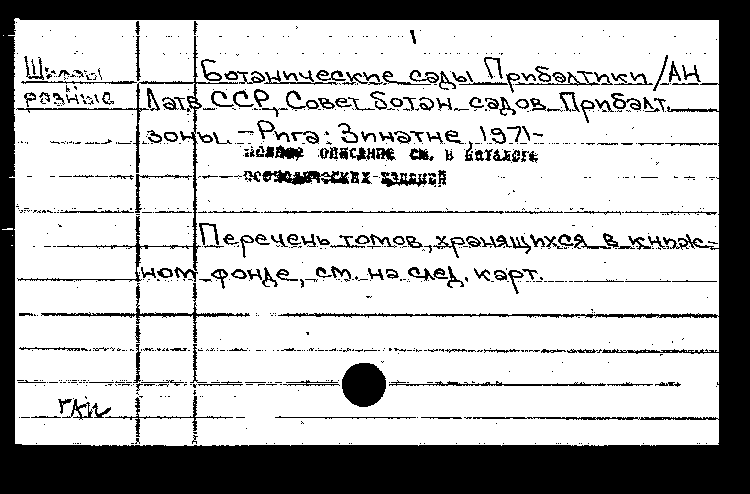 1
Шифры
разные
Ботанические сады Прибалтики/АН
Латв ССР, Совет ботан садов Прибалт.
зоны. -Рига: Зинатне, 1971-
полное описание см. в каталоге
периодических изданий
Перечень томов, хранящихся в книж-
ном фонде, см. на след. карт.